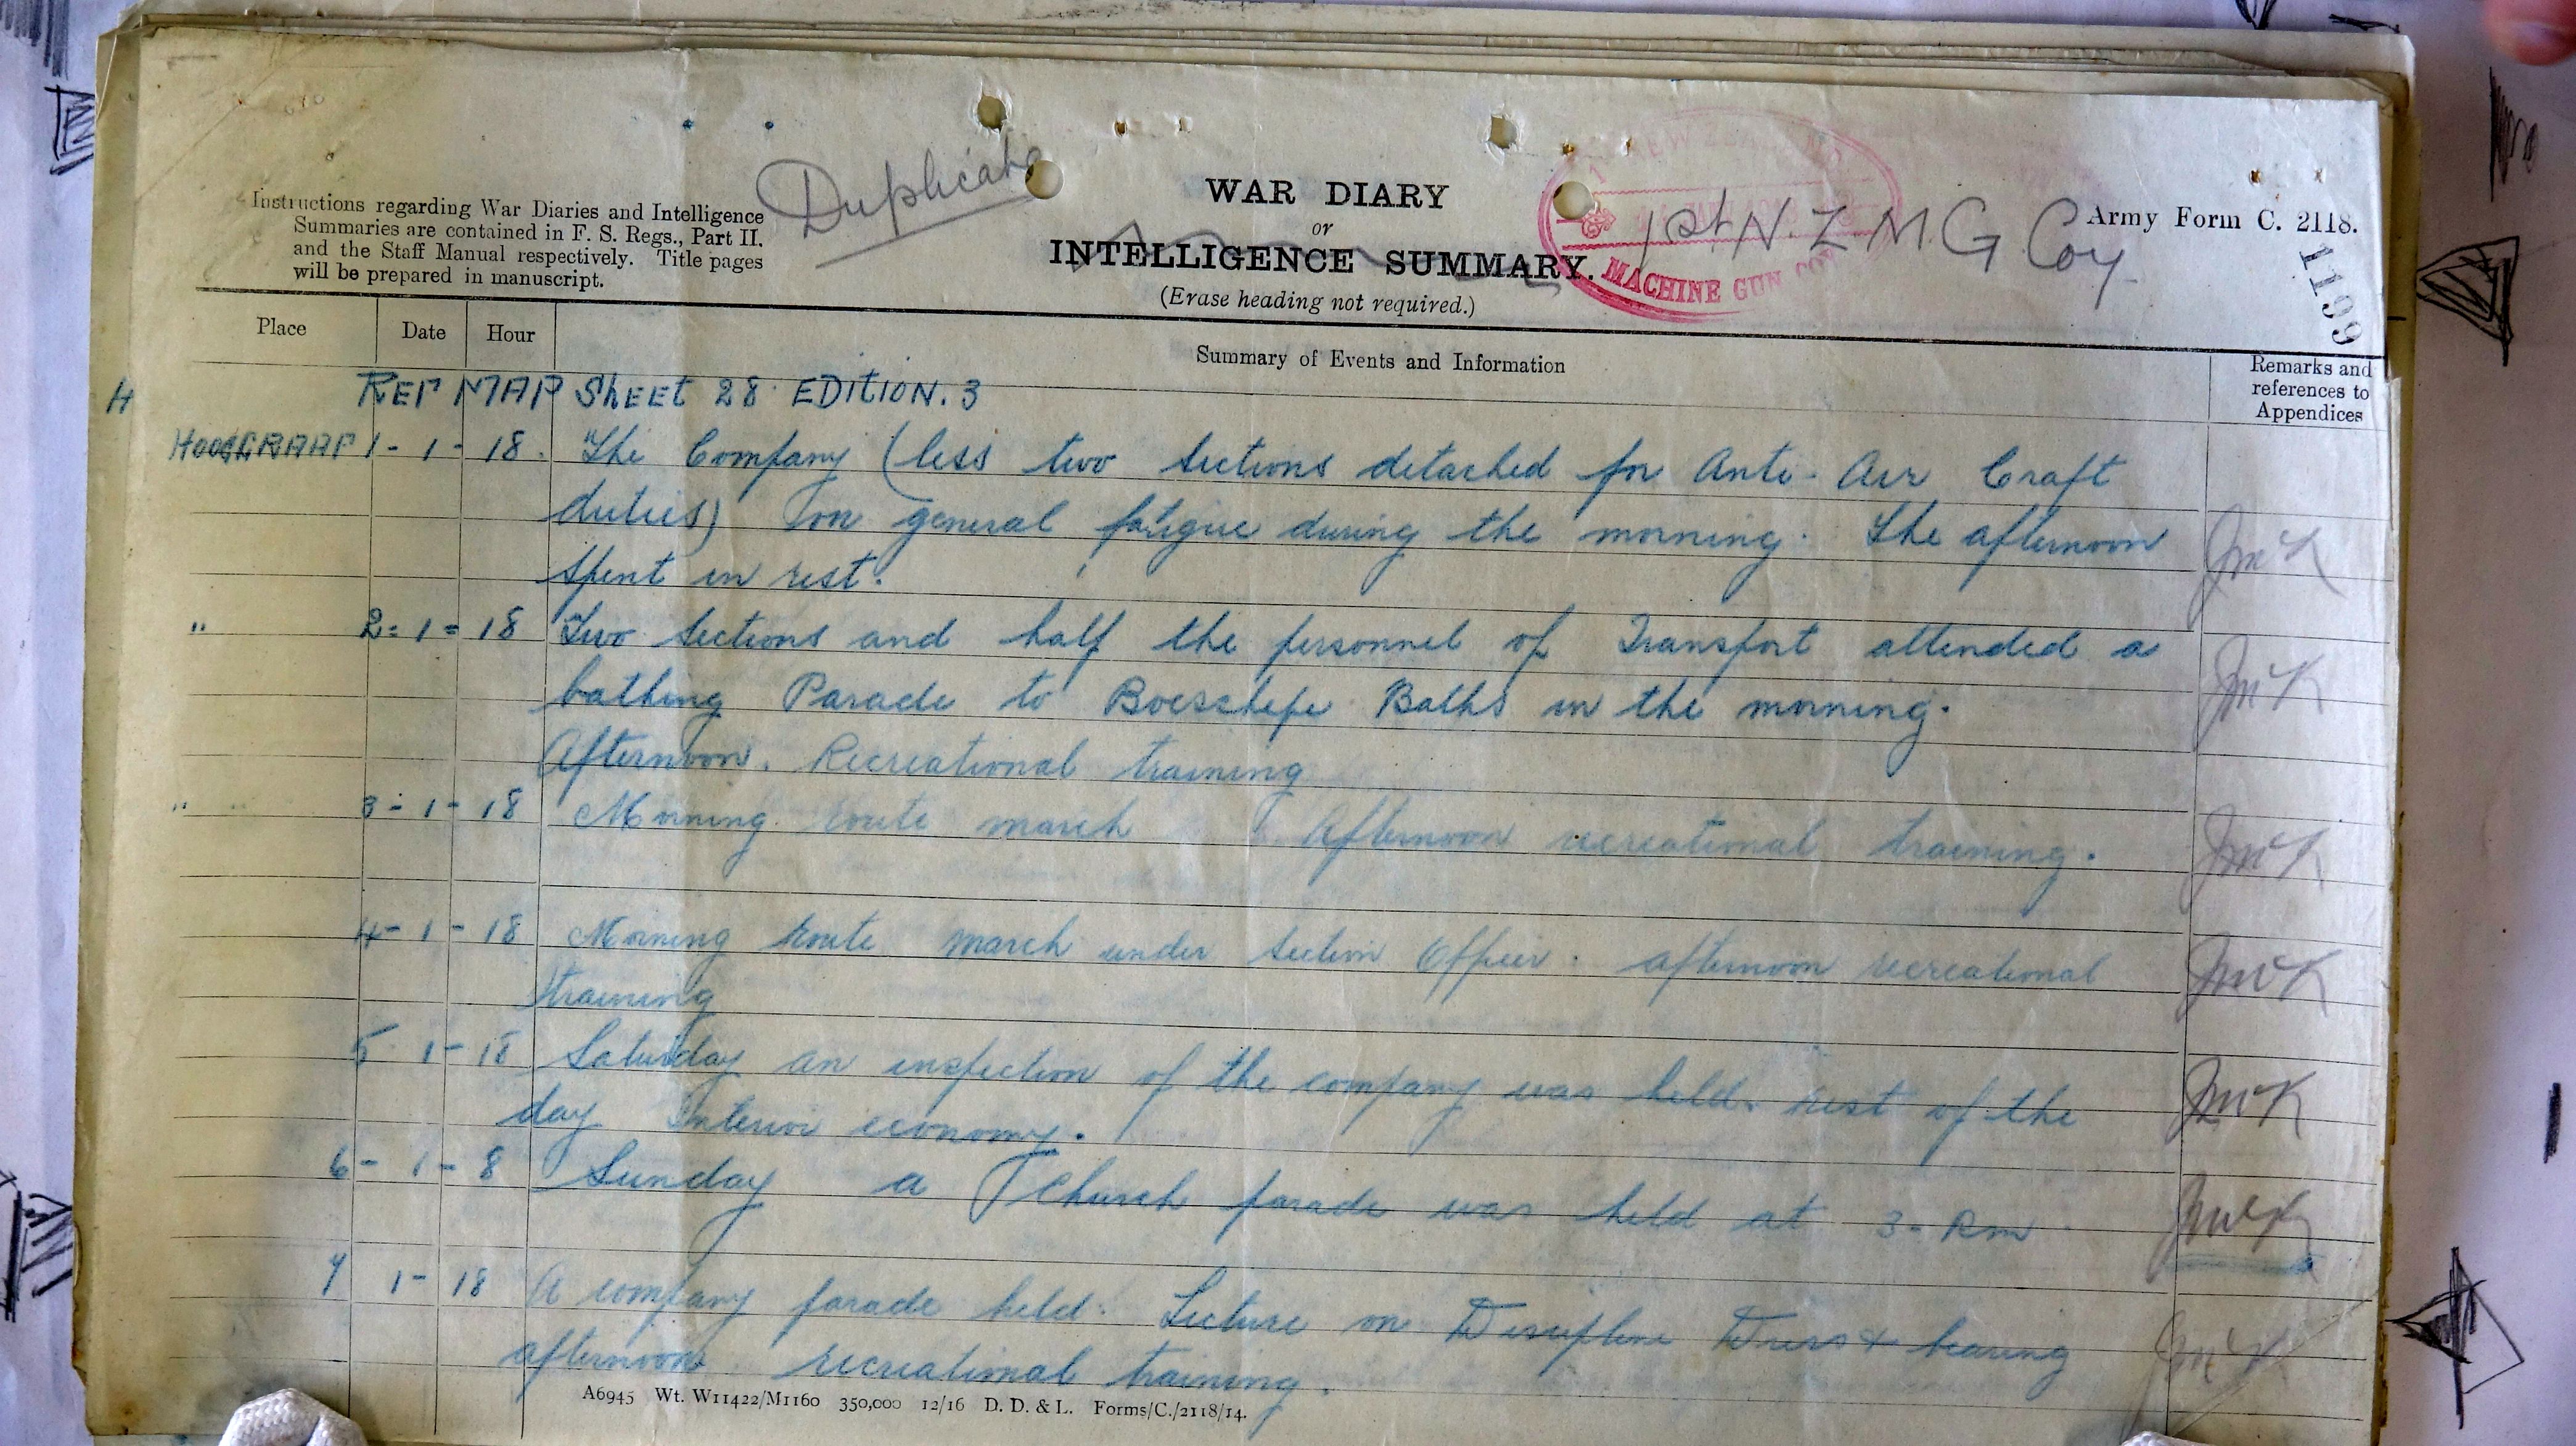 Duplicate
Instructions regarding War Diaries and Intelligence
Summaries are contained in F. S. Regs., Part II.
and the Staff Manual respectively. Title pages
will be prepared in manuscript.
WAR DIARY
or
INTELLIGENCE SUMMARY.
(Erase heading not required.)
NEW ZEALAND
MACHINE GUN COY
1st N. Z M. G Coy
Army Form C. 2118.
1199
Place Date Hour Summary of Events and Information Remarks and
references to
Appendices
H REF MAP ShEEt 28 EDITION. 3
HOOGRAAF 1 - 1 - 18. The Company (less two sections detached for Anti-Air Craft
duties) on general fatigue during the morning. The afternoon JMcK
spent in rest.
" 2 = 1 = 18 Two sections and half the personnel of Transport attended a JMcK
bathing Parade to Boeschepe Baths in the morning.
Afternoon. Recreational training
" 3 - 1 - 18 Morning route march Afternoon recreational training. JMcK
4 - 1 - 18 Morning route march under section Officer. afternoon recreational JMcK
training
5 1 - 18 Saturday an inspection of the company was held. rest of the JMcK
day Interior economy.
6 - 1 - 8 Sunday a Church parade was held at 3 - Pm JMcK
7 1 - 18 A company parade held. Lecture on Discipline Dress & bearing JMcK
afternoon recreational training.
A6945 Wt. W11422/M1160 350,000 12/16 D. D. & L. Forms/C./2118/14.